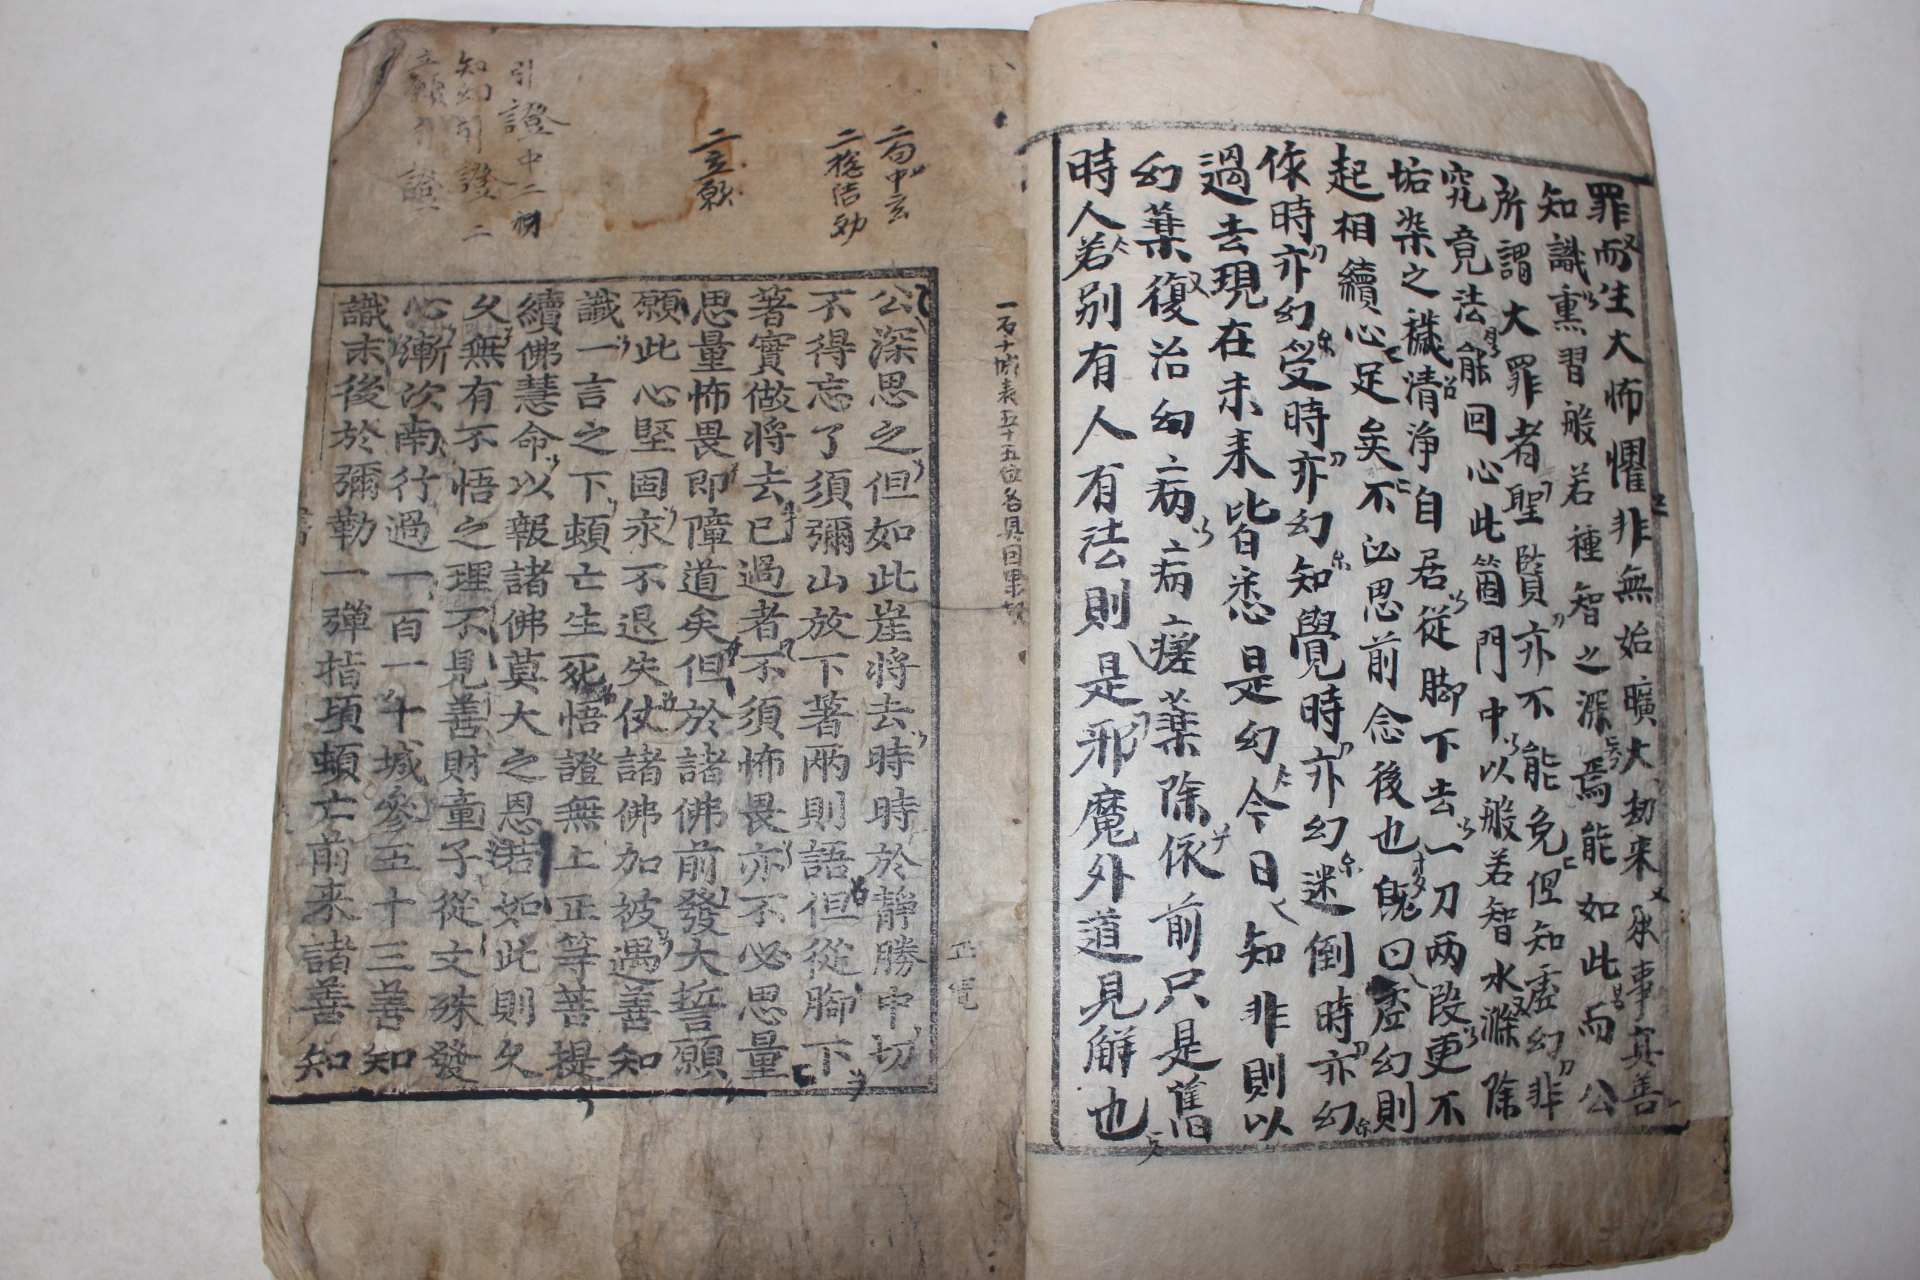 罪而生大怖懼非無始曠大劫来承事真善
知識熏習般若種智之深焉能如此而公
所謂大罪者聖賢亦不能免但知虛幻非
究竟法能回心此箇門中以般若智水滌除
垢染之穢清淨自居從脚下去一刀兩段更不
起相續心足矣不必思前念後也旣曰虛幻則
作時亦幻受時亦幻知覺時亦幻迷倒時亦幻
過去現在未来皆悉是幻今日知非則以
幻藥復治幻病病瘥藥除依前只是舊
時人若別有人有法則是邪魔外道見解也
一百十城表五十五位各具因果
二立願
引證中二初
知幻引證二
立願引證
公深思之但如此崖將去時時於靜勝中切
不得忘了須彌山放下著兩則語但從脚下
著實做將去已過者不須怖畏亦不必思量
思量怖畏即障道矣但於諸佛前發大誓願
願此心堅固永不退失仗諸佛加被遇善知
識一言之下頓亡生死悟證無上正等菩提
續佛慧命以報諸佛莫大之恩若如此則久
久無有不悟之理不見善財童子從文殊發
心漸次南行過一百一十城參五十三善知
識末後於彌勒一彈指頃頓亡前来諸善知